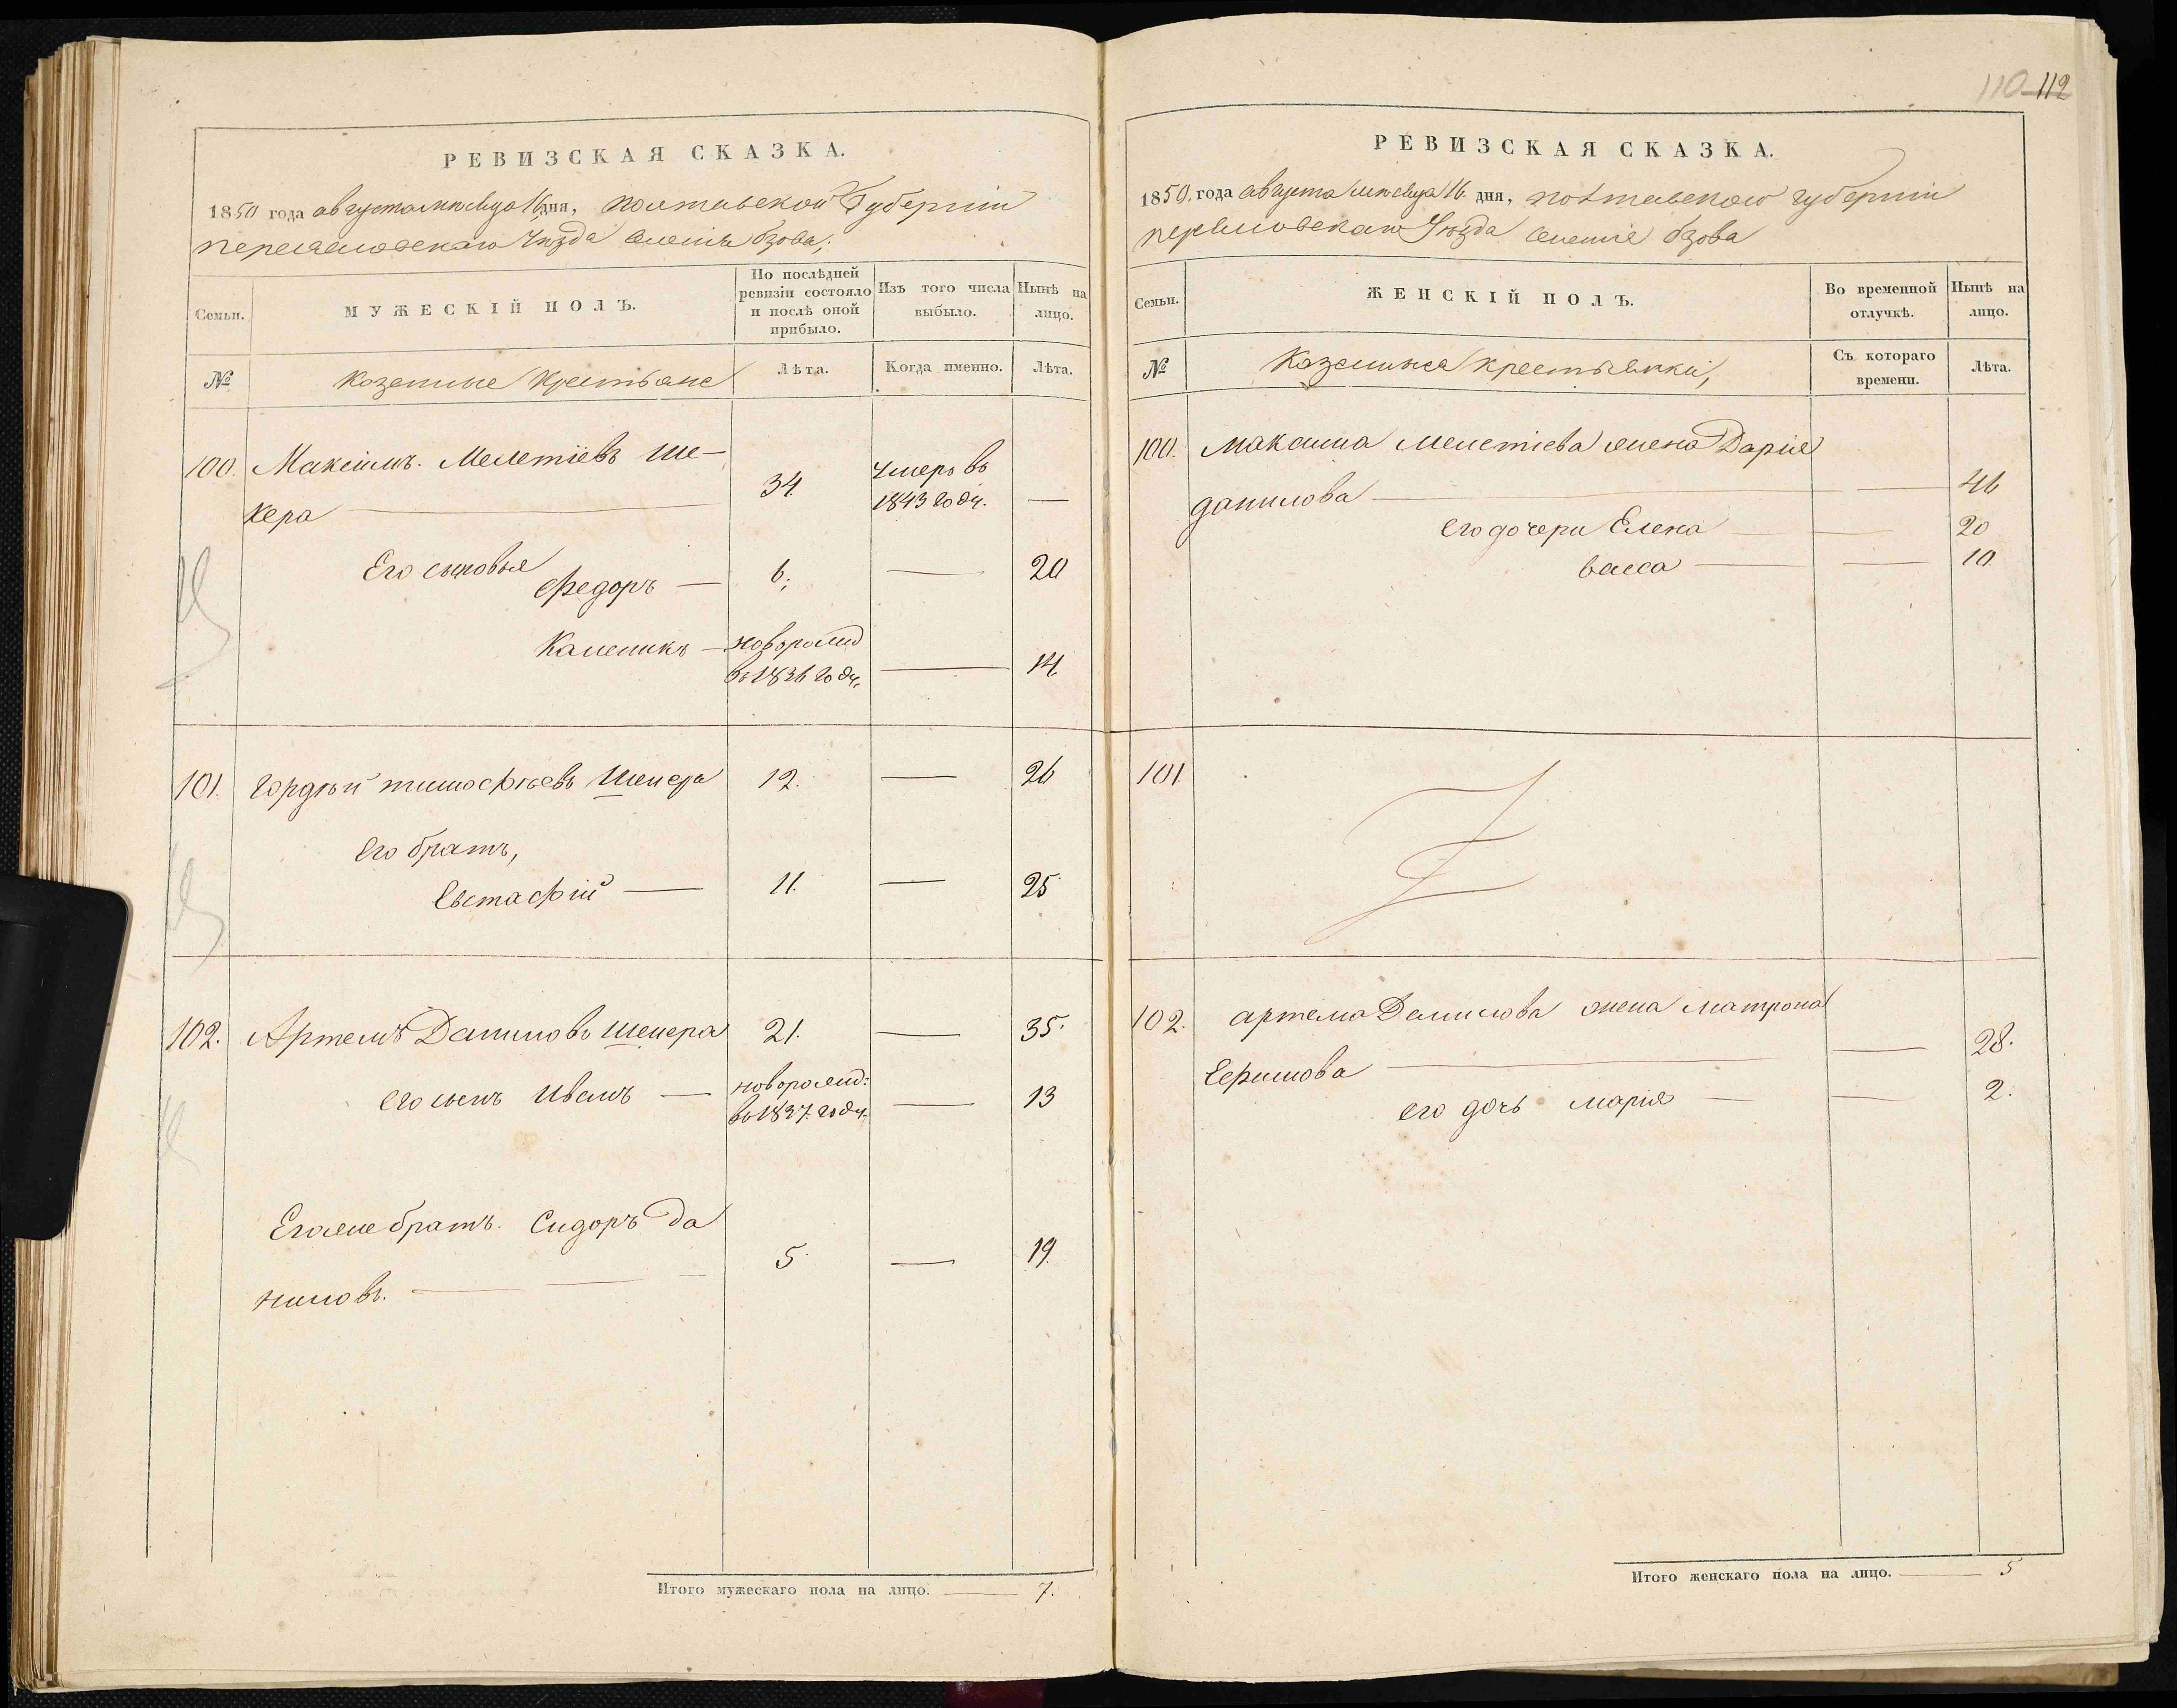 110 112
РЕВИЗСКАЯ СКАЗКА.
1850 года августа мѣсяца 16 дня, Полтавской Губерніи
Переяславскаго Уѣзда селенія Бзова;
Семьи.
МУЖЕСКІЙ ПОЛЪ.
По послѣдней ревизіи состояло и послѣ оной прибыло.
Изъ того числа выбыло.
Нынѣ на лицо.
№
Казенные Крестьяне
Лѣта.
Когда именно.
Лѣта.
100. Максимъ Мелетіевъ Ше-
кера — 34. Умеръ въ 1843 году. —
Его сыновья
Федоръ — 6; — 20
Каленикъ — новорожд въ 1836 году, — 14.
101. Гордѣй Тимофѣевъ Шекера 12. — 26
Его братъ,
Евстафій — 11. — 25
102. Артемъ Даниловъ Шекера 21. — 35.
его сынъ Иванъ — новорожд: въ 1837. году. — 13
Егоже братъ. Сидоръ Да
ниловъ. — 5. — 19.
Итого мужескаго пола на лицо. — 7.
РЕВИЗСКАЯ СКАЗКА.
1850. года августа мѣсяца 16. дня, Полтавской губерніи
Переясловскаго Уѣзда селенія Бзова
Семьи.
ЖЕНСКІЙ ПОЛЪ.
Во временной отлучкѣ.
Нынѣ на лицо.
№
Казенныя крестьянки,
Съ котораго времени.
Лѣта.
100. Максима Мелетіева жена Дарія
Данилова — — 46
его дочери Елена — — 20
Васса — — 10
101.
102. Артема Данилова жена Матрона
Ефимова — — 28.
его дочь Марія — — 2.
Итого женскаго пола на лицо. — 5